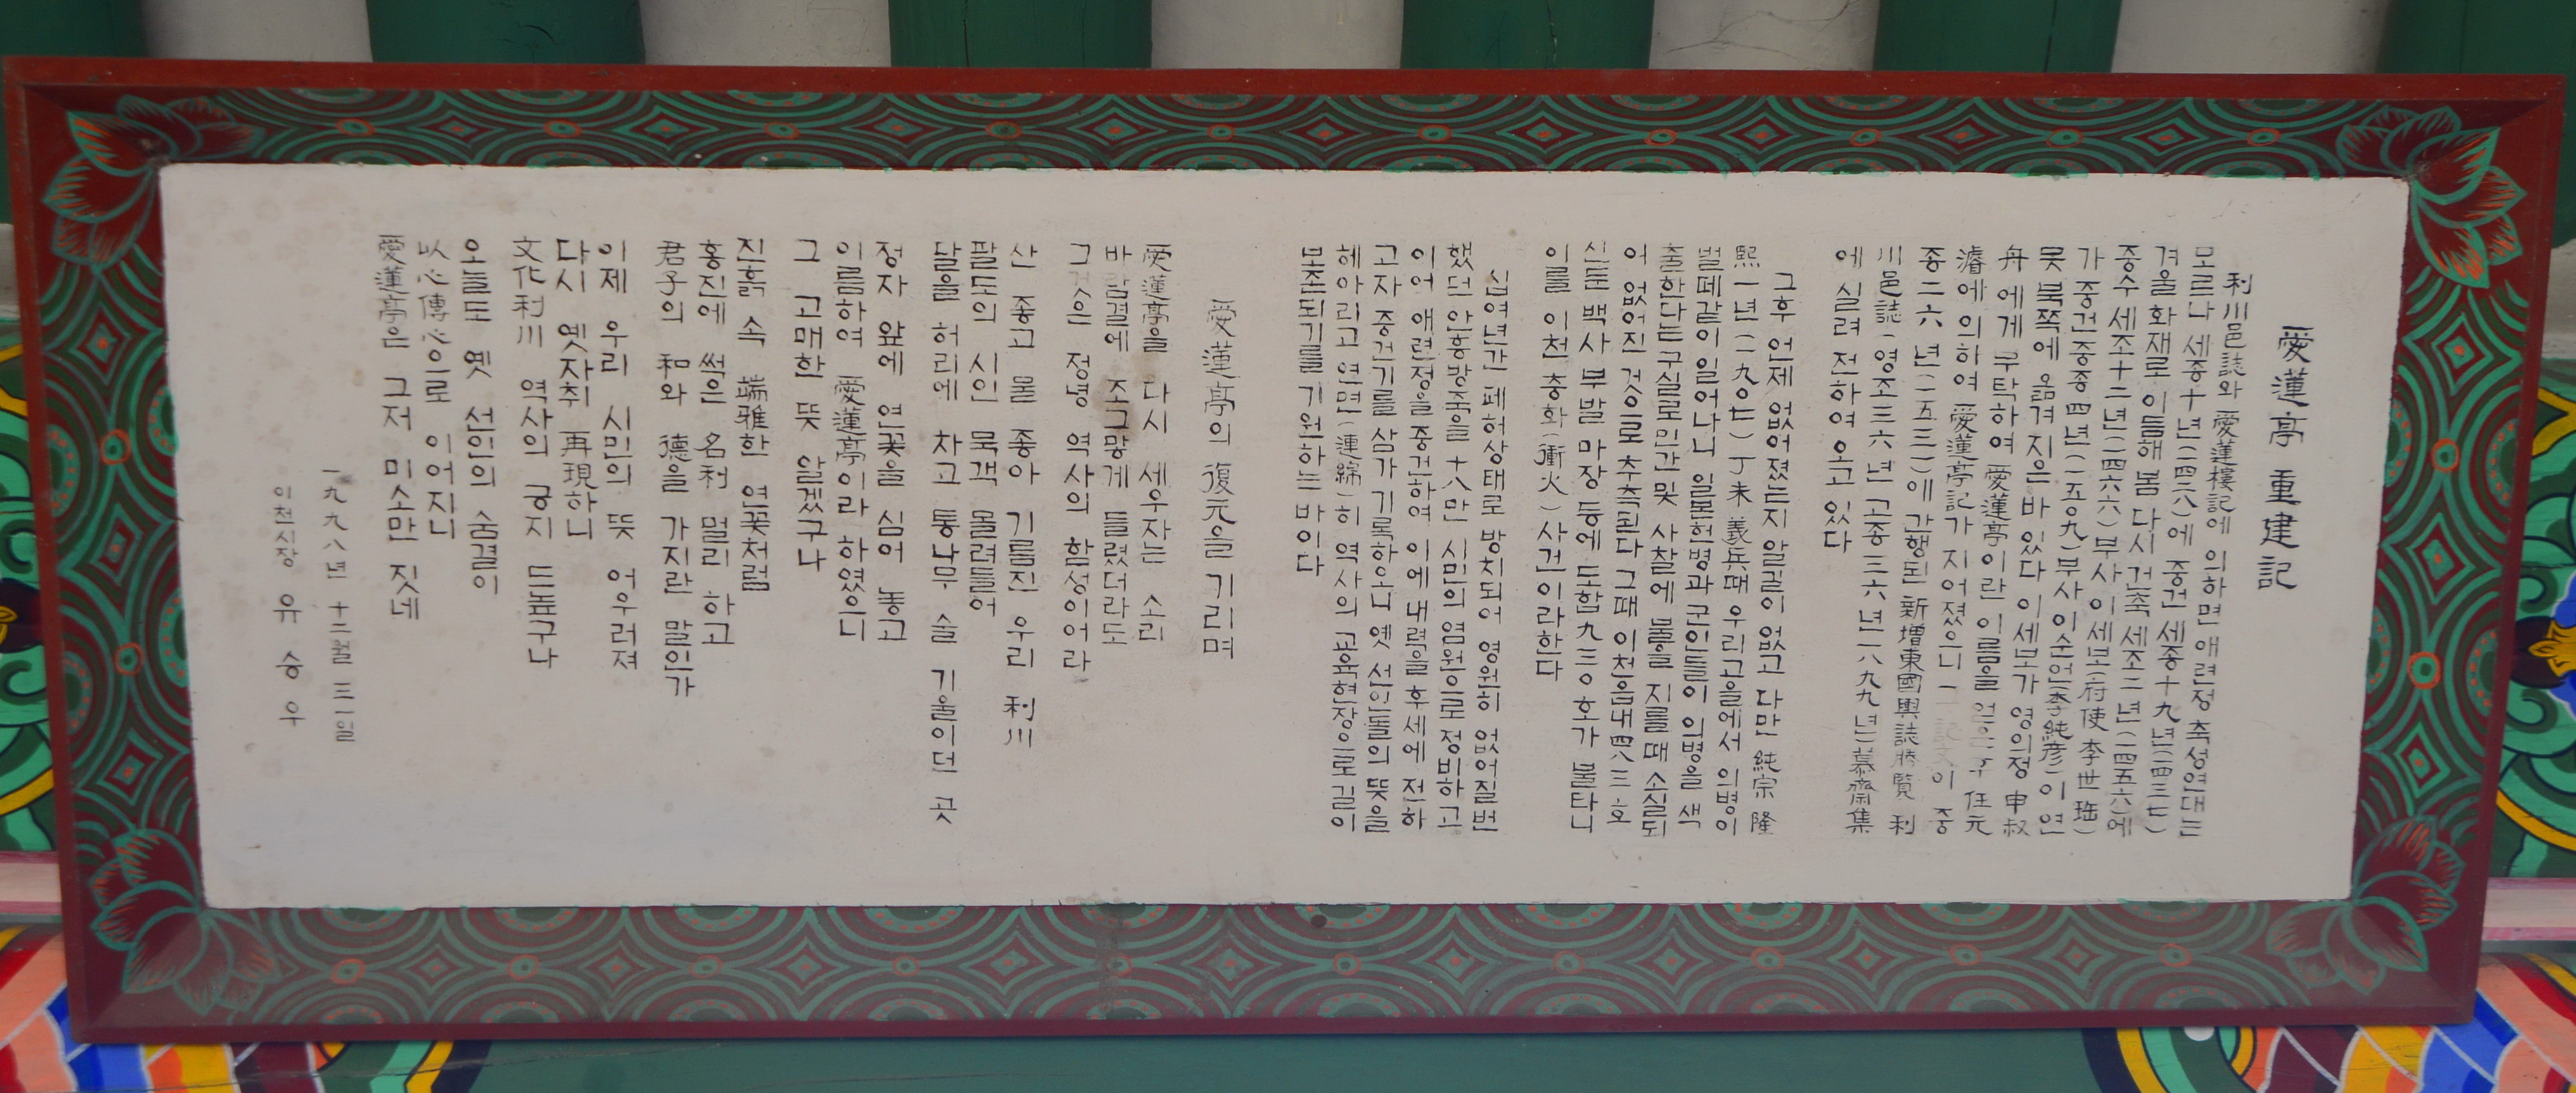 愛蓮亭 重建記
利川邑誌와 愛蓮樓記에 의하면 애련정 축성연대는
모르나 세종十년(一四二八)에 중건 세종十九년(一四三七)
겨울 화재로 이듬해 봄 다시 건축 세조二년(一四五六)에
중수 세조十二년(一四六六) 부사 이세보(府使 李世珤)
가 중건 중종四년(一五○九) 부사 이순언(李純彦)이 연
못 북쪽에 옮겨 지은 바 있다 이세보가 영의정 申叔
舟에게 부탁하여 愛蓮亭이란 이름을 얻은 후 任元
濬에 의하여 愛蓮亭記가 지어졌으니 그 記文이 중
종二六년(一五三一)에 간행된 新增東國輿誌勝覽 利
川邑誌(영조三六년 고종三六년 一八九九년) 慕齋集
에 실려 전하여 오고 있다
그후 언제 없어졌는지 알길이 없고 다만 純宗 隆
熙一년(一九○七) 丁未 義兵때 우리고을에서 의병이
벌떼같이 일어나니 일본헌병과 군인들이 의병을 색
출한다는 구실로 민간 및 사찰에 불을 지를때 소실되
어 없어진 것으로 추측된다 그때 이천읍내 四八三호
신둔 백사 부발 마장 등에 도합 九三○호가 불타니
이를 이천 충화(衝火)사건이라한다
십여년간 폐허상태로 방치되어 영원히 없어질번
했던 안흥방죽을 十八만 시민의 염원으로 정비하고
이어 애련정을 중건하여 이에 내력을 후세에 전하
고자 중건기를 삼가 기록하오니 옛 선인들의 뜻을
헤아리고 연면(連綿)히 역사의 교육현장으로 길이
보존되기를 기원하는 바이다
愛蓮亭의 復元을 기리며
愛蓮亭을 다시 세우자는 소리
바람결에 조그맣게 들렸더라도
그것은 정녕 역사의 함성이어라
산 좋고 물 좋아 기름진 우리 利川
팔도의 시인 묵객 몰려들어
달을 허리에 차고 통나무 술 기울이던 곳
정자 앞에 연꽃을 심어 놓고
이름하여 愛蓮亭이라 하였으니
그 고매한 뜻 알겠구나
진흙 속 端雅한 연꽃처럼
홍진에 썩은 名利 멀리 하고
君子의 和와 德을 가지란 말인가
이제 우리 시민의 뜻 어우러져
다시 옛자취 再現하니
文化利川 역사의 긍지 드높구나
오늘도 옛 선인의 숨결이
以心傳心으로 이어지니
愛蓮亭은 그저 미소만 짓네
一九九八년 十二월 三一일
이천시장 유 승 우